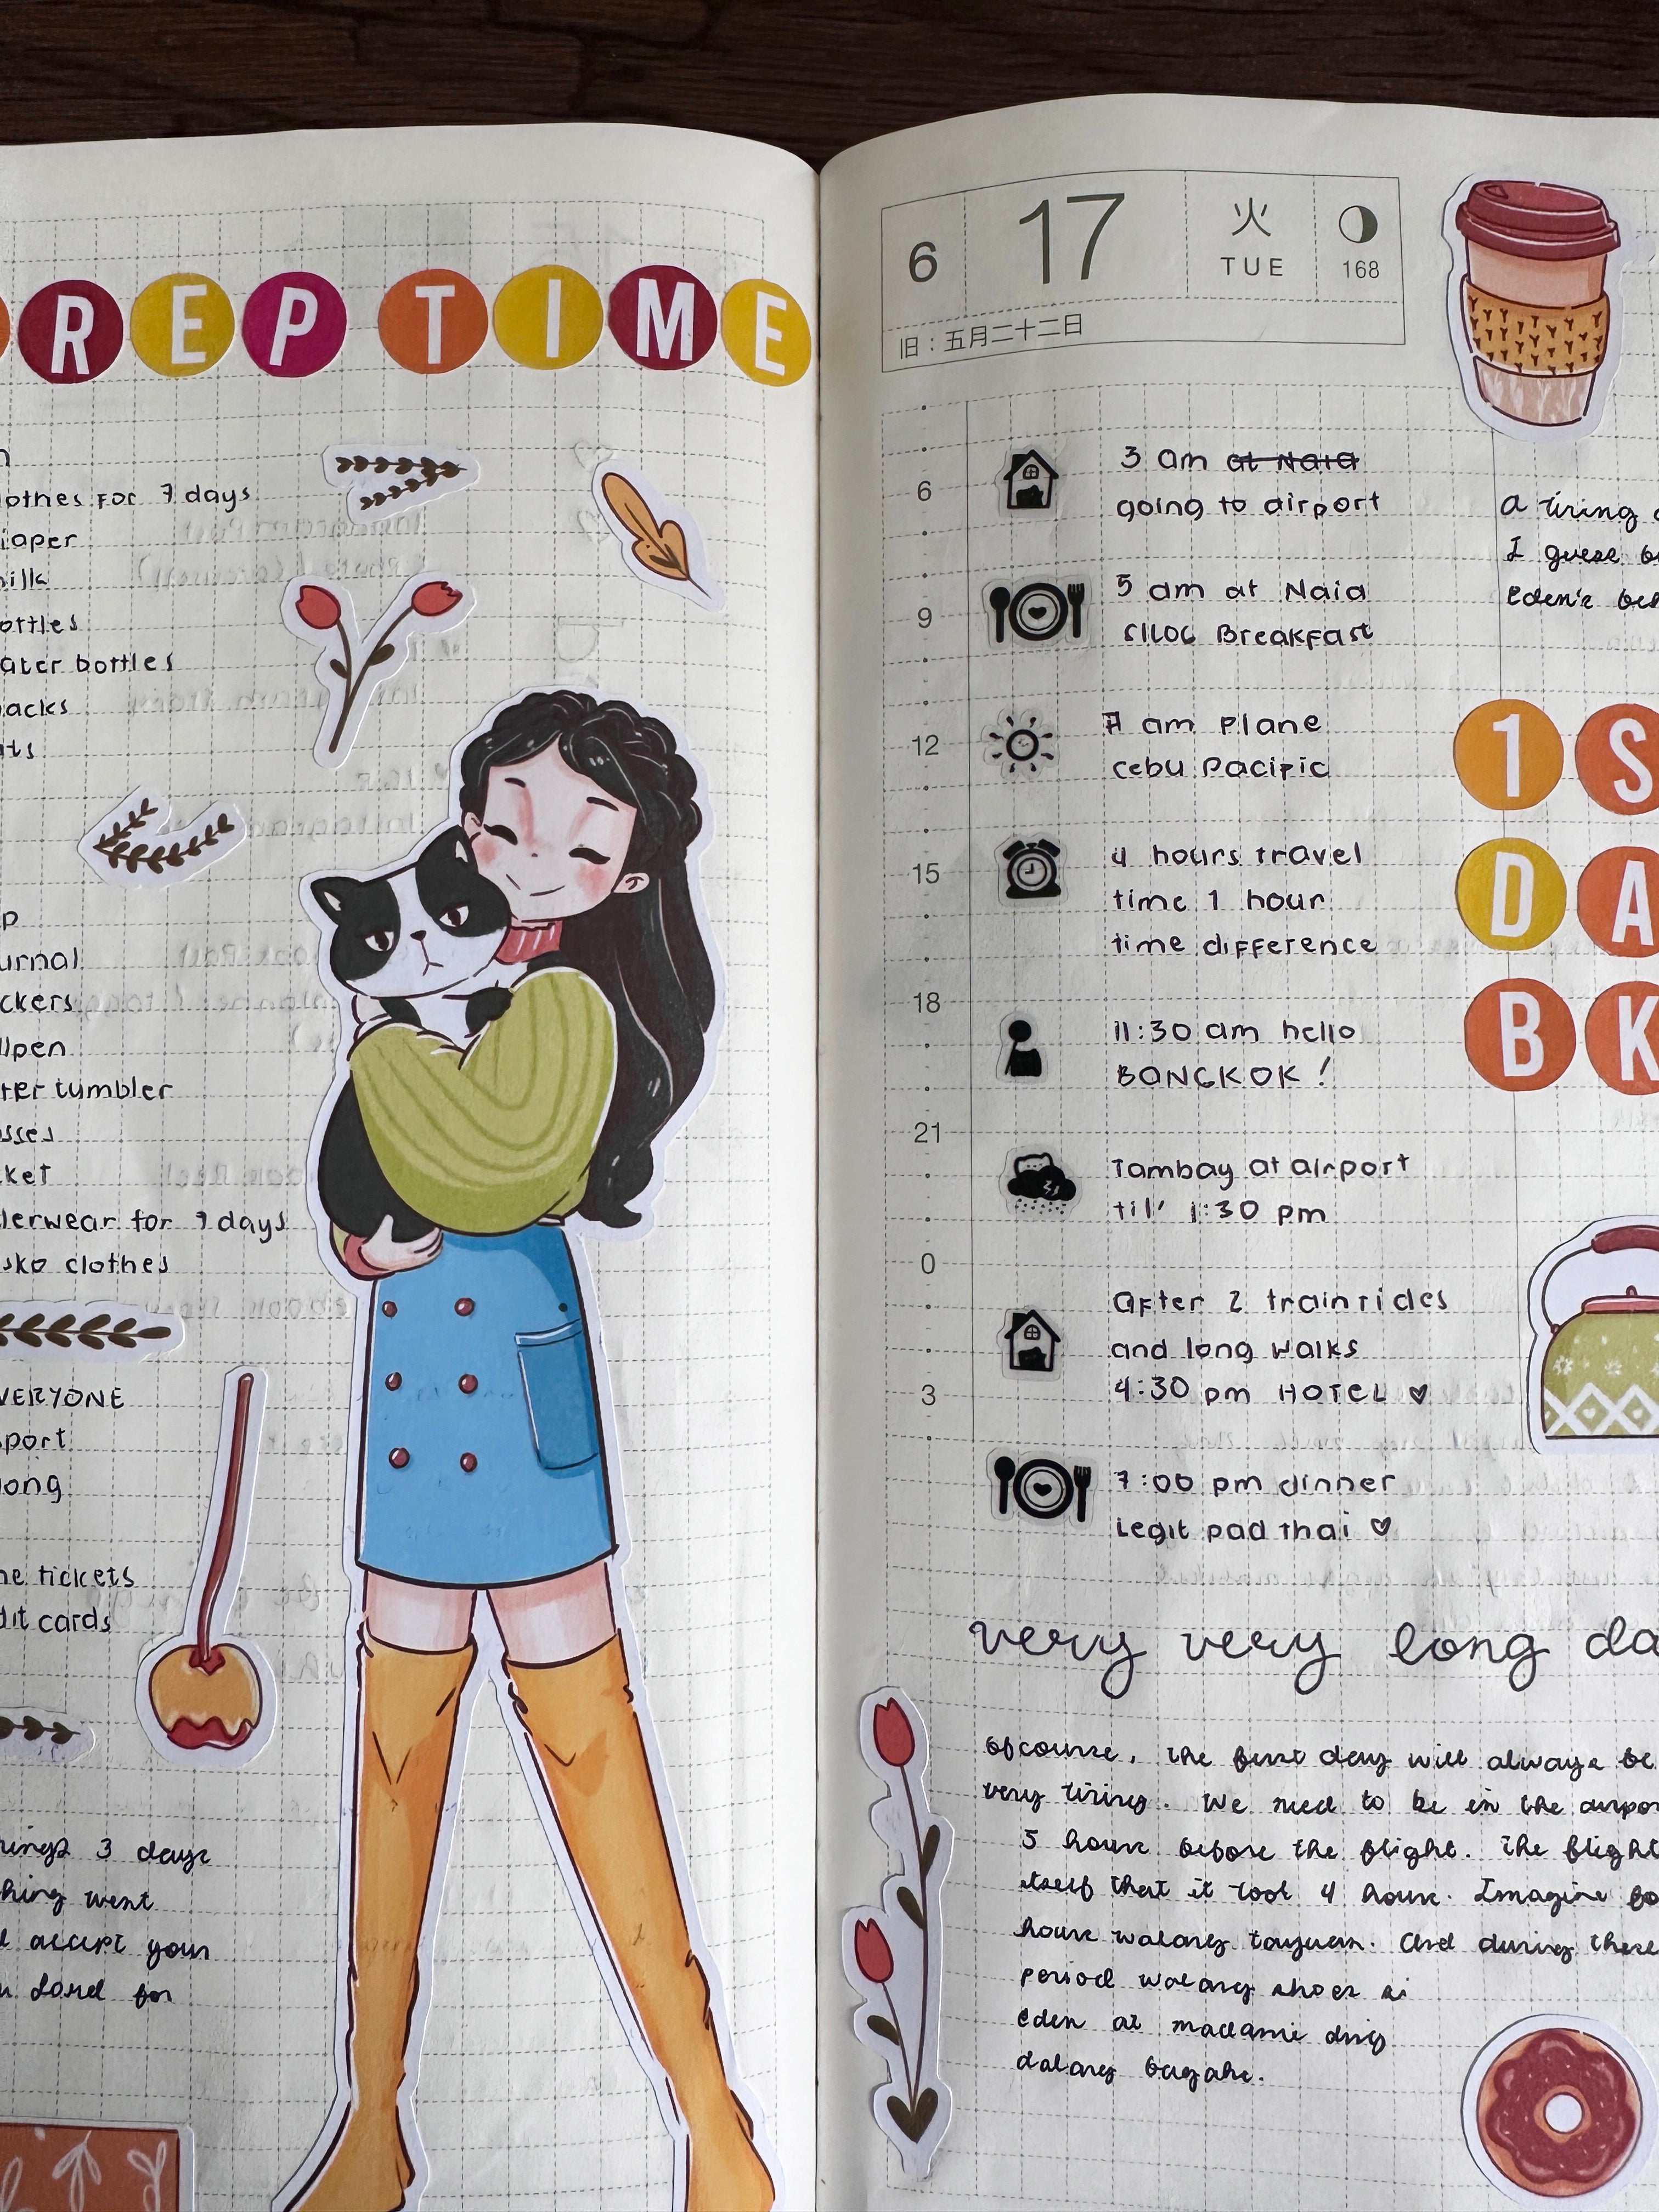 REP TIME
lothes for 7 days
iaper
milk
ottles
ater bottles
nacks
ats
p
urnal
ckers
llpen
ter tumbler
sses
cket
derwear for 7 days
sko clothes
VERYONE
sport
long
ne tickets
dit cards
rings 3 days
thing went
accept your
Lord for
6 17 火 TUE 168
旧：五月二十二日
6
9
12
15
18
21
0
3
3 am at Naia
going to airport
5 am at Naia
SILOG Breakfast
7 am Plane
Cebu Pacific
4 hours travel
time 1 hour
time difference
11:30 am hello
BANGKOK !
Tambay at airport
til' 1:30 pm
After 2 train rides
and long walks
4:30 pm HOTEL ♡
7:00 pm dinner
Legit pad thai ♡
A tiring
I guess
Eden's
1 S
D A
B K
very very long da
Ofcourse, the first day will always be
very tiring. We need to be in the airpor
5 hours before the flight. The flight
itself that it took 4 hours. Imagine
hours walang tayuan. And during these
period walang shoes si
Eden at madami ding
dalang bagahe.